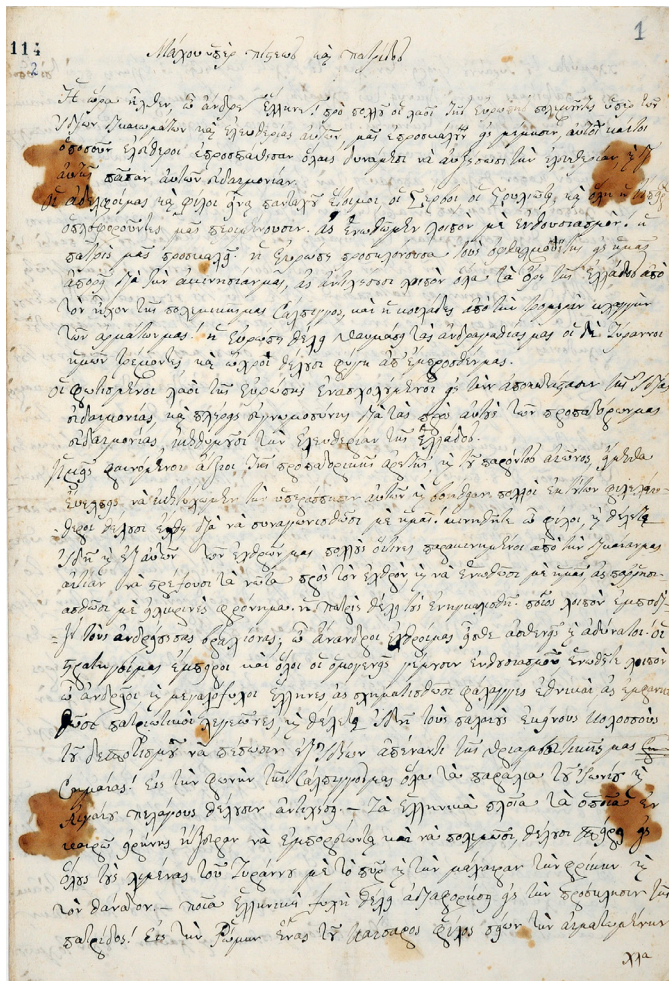 114
1
2
Μάχου ὑπὲρ πίστεως καὶ πατρίδος
Ἡ ὥρα ἦλθεν, ὦ ἄνδρες Ἕλληνες! πρὸ πολλοῦ οἱ λαοὶ τῆς Εὐρώπης πολεμοῦντες ὑπὲρ τῶν
ἰδίων δικαιωμάτων καὶ ἐλευθερίας αὐτῶν, μᾶς ἐπροσκάλουν εἰς μίμησιν, αὐτοὶ καίτοι
ὁπωσοῦν ἐλεύθεροι ἐπροσπάθησαν ὅλαις δυνάμεσι νὰ αὐξήσωσι τὴν ἐλευθερίαν, καὶ δι'
αὐτῆς πᾶσαν αὐτῶν εὐδαιμονίαν.
οἱ ἀδελφοί μας καὶ φίλοι εἶναι πανταχοῦ ἕτοιμοι, οἱ Σέρβοι οἱ Σουλιῶται, καὶ ὅλη ἡ Ἤπειρος
ὁπλοφοροῦντες μᾶς περιμένουσιν. ἂς ἑνωθῶμεν λοιπὸν μὲ ἐνθουσιασμόν! ἡ
πατρὶς μᾶς προσκαλεῖ. ἡ Εὐρώπη προσηλόνουσα τοὺς ὀφθαλμούς της εἰς ἡμᾶς
ἀπορεῖ διὰ τὴν ἀκινησίαν μας, ἂς ἀντηχήσωσι λοιπὸν ὅλα τὰ ὄρη τῆς Ἑλλάδος ἀπὸ
τὸν ἦχον τῆς πολεμικῆς μας σάλπιγγος, καὶ ἡ κοιλάδες ἀπὸ τὴν τρομερὰν κλαγγὴν
τῶν ἁρμάτων μας! ἡ Εὐρώπη θέλει θαυμάσῃ τὰς ἀνδραγαθίας μας οἱ δὲ Τύραννοι
ἡμῶν τρέμοντες καὶ ὠχροὶ θέλουσι φύγῃ ἀπ' ἔμπροσθέν μας.
οἱ φωτισμένοι λαοὶ τῆς Εὐρώπης ἐνασχολημένοι εἰς τὴν ἀποκατάστασιν τῆς ἰδίας
εὐδαιμονίας καὶ πλήρεις εὐγνωμοσύνης διὰ τὰς πρὸς αὐτοὺς τῶν προπατόρων μας
εὐδαιμονίας, ἐπιθυμοῦσι τὴν ἐλευθερίαν τῆς Ἑλλάδος.
Ἡμεῖς φαινόμενοι ἄξιοι τῆς προπατορικῆς ἀρετῆς, καὶ τοῦ παρόντος αἰῶνος εἴμεθα
εὐέλπιδες, νὰ ἐπιτύχωμεν τὴν ὑπεράσπισιν αὐτῶν καὶ βοήθειαν πολλοὶ ἐκ τούτων φιλελεύ-
θεροι θέλουσι ἔλθῃ διὰ νὰ συναγωνισθῶσι μὲ ἡμᾶς! κινηθῆτε ὦ φίλοι, καὶ θέλετε
ἰδῆ
τὸν ἐχθρὸν καὶ νὰ ἑνωθῶσι μὲ ἡμᾶς ἂς παρῥησι-
ασθῶσι με εἰλικρινὲς φρόνημα. ἡ πατρὶς θέλει τοὺς ἐναγκαλισθῆ! ποῖος λοιπὸν ἐμποδί-
στρατηγοί μας ἔμπειροι καὶ ὅλοι οἱ ὁμογενεῖς γέμουσιν ἐνθουσιασμοῦ ἑνωθῆτε λοιπὸν
ὦ ἀνδρεῖοι καὶ μεγαλόψυχοι Ἕλληνες ἂς σχηματισθῶσι φάλαγγες ἐθνικαὶ ἂς ἐμφανι-
σθῶσι πατριωτικαὶ λεγεῶνες, καὶ θέλετε ἰδῆ τοὺς παλαιοὺς ἐκείνους κολοσσοὺς
τοῦ δεσποτισμοῦ νὰ πέσωσιν ἐξ ἰδίων ἀπέναντι τῆς θριαμβευτικῆς μας
Σημαίας! Εἰς τὴν φωνὴν τῆς σάλπιγγός μας ὅλα τὰ παράλια τοῦ Ἰωνίου καὶ
Αἰγαίου πελάγους θέλουσιν ἀντηχήσῃ. — Τὰ ἑλληνικὰ πλοῖα τὰ ὁποῖα ἐν
καιρῷ εἰρήνης ἤξευραν νὰ ἐμπορεύωνται καὶ νὰ πολεμῶσι, θέλουσι σπείρῃ εἰς
ὅλους τοὺς λιμένας τοῦ Τυράννου με τὸ πῦρ καὶ τὴν μάχαιραν τὴν φρίκην καὶ
τὸν θάνατον. — ποία ἑλληνικὴ ψυχὴ θέλει ἀδιαφορήσῃ εἰς τὴν πρόσκλησιν τῆς
πατρίδος! Εἰς τὴν Ῥώμην ἕνας τοῦ Καίσαρος φίλος σείων τὴν αἱματωμένην
χλα